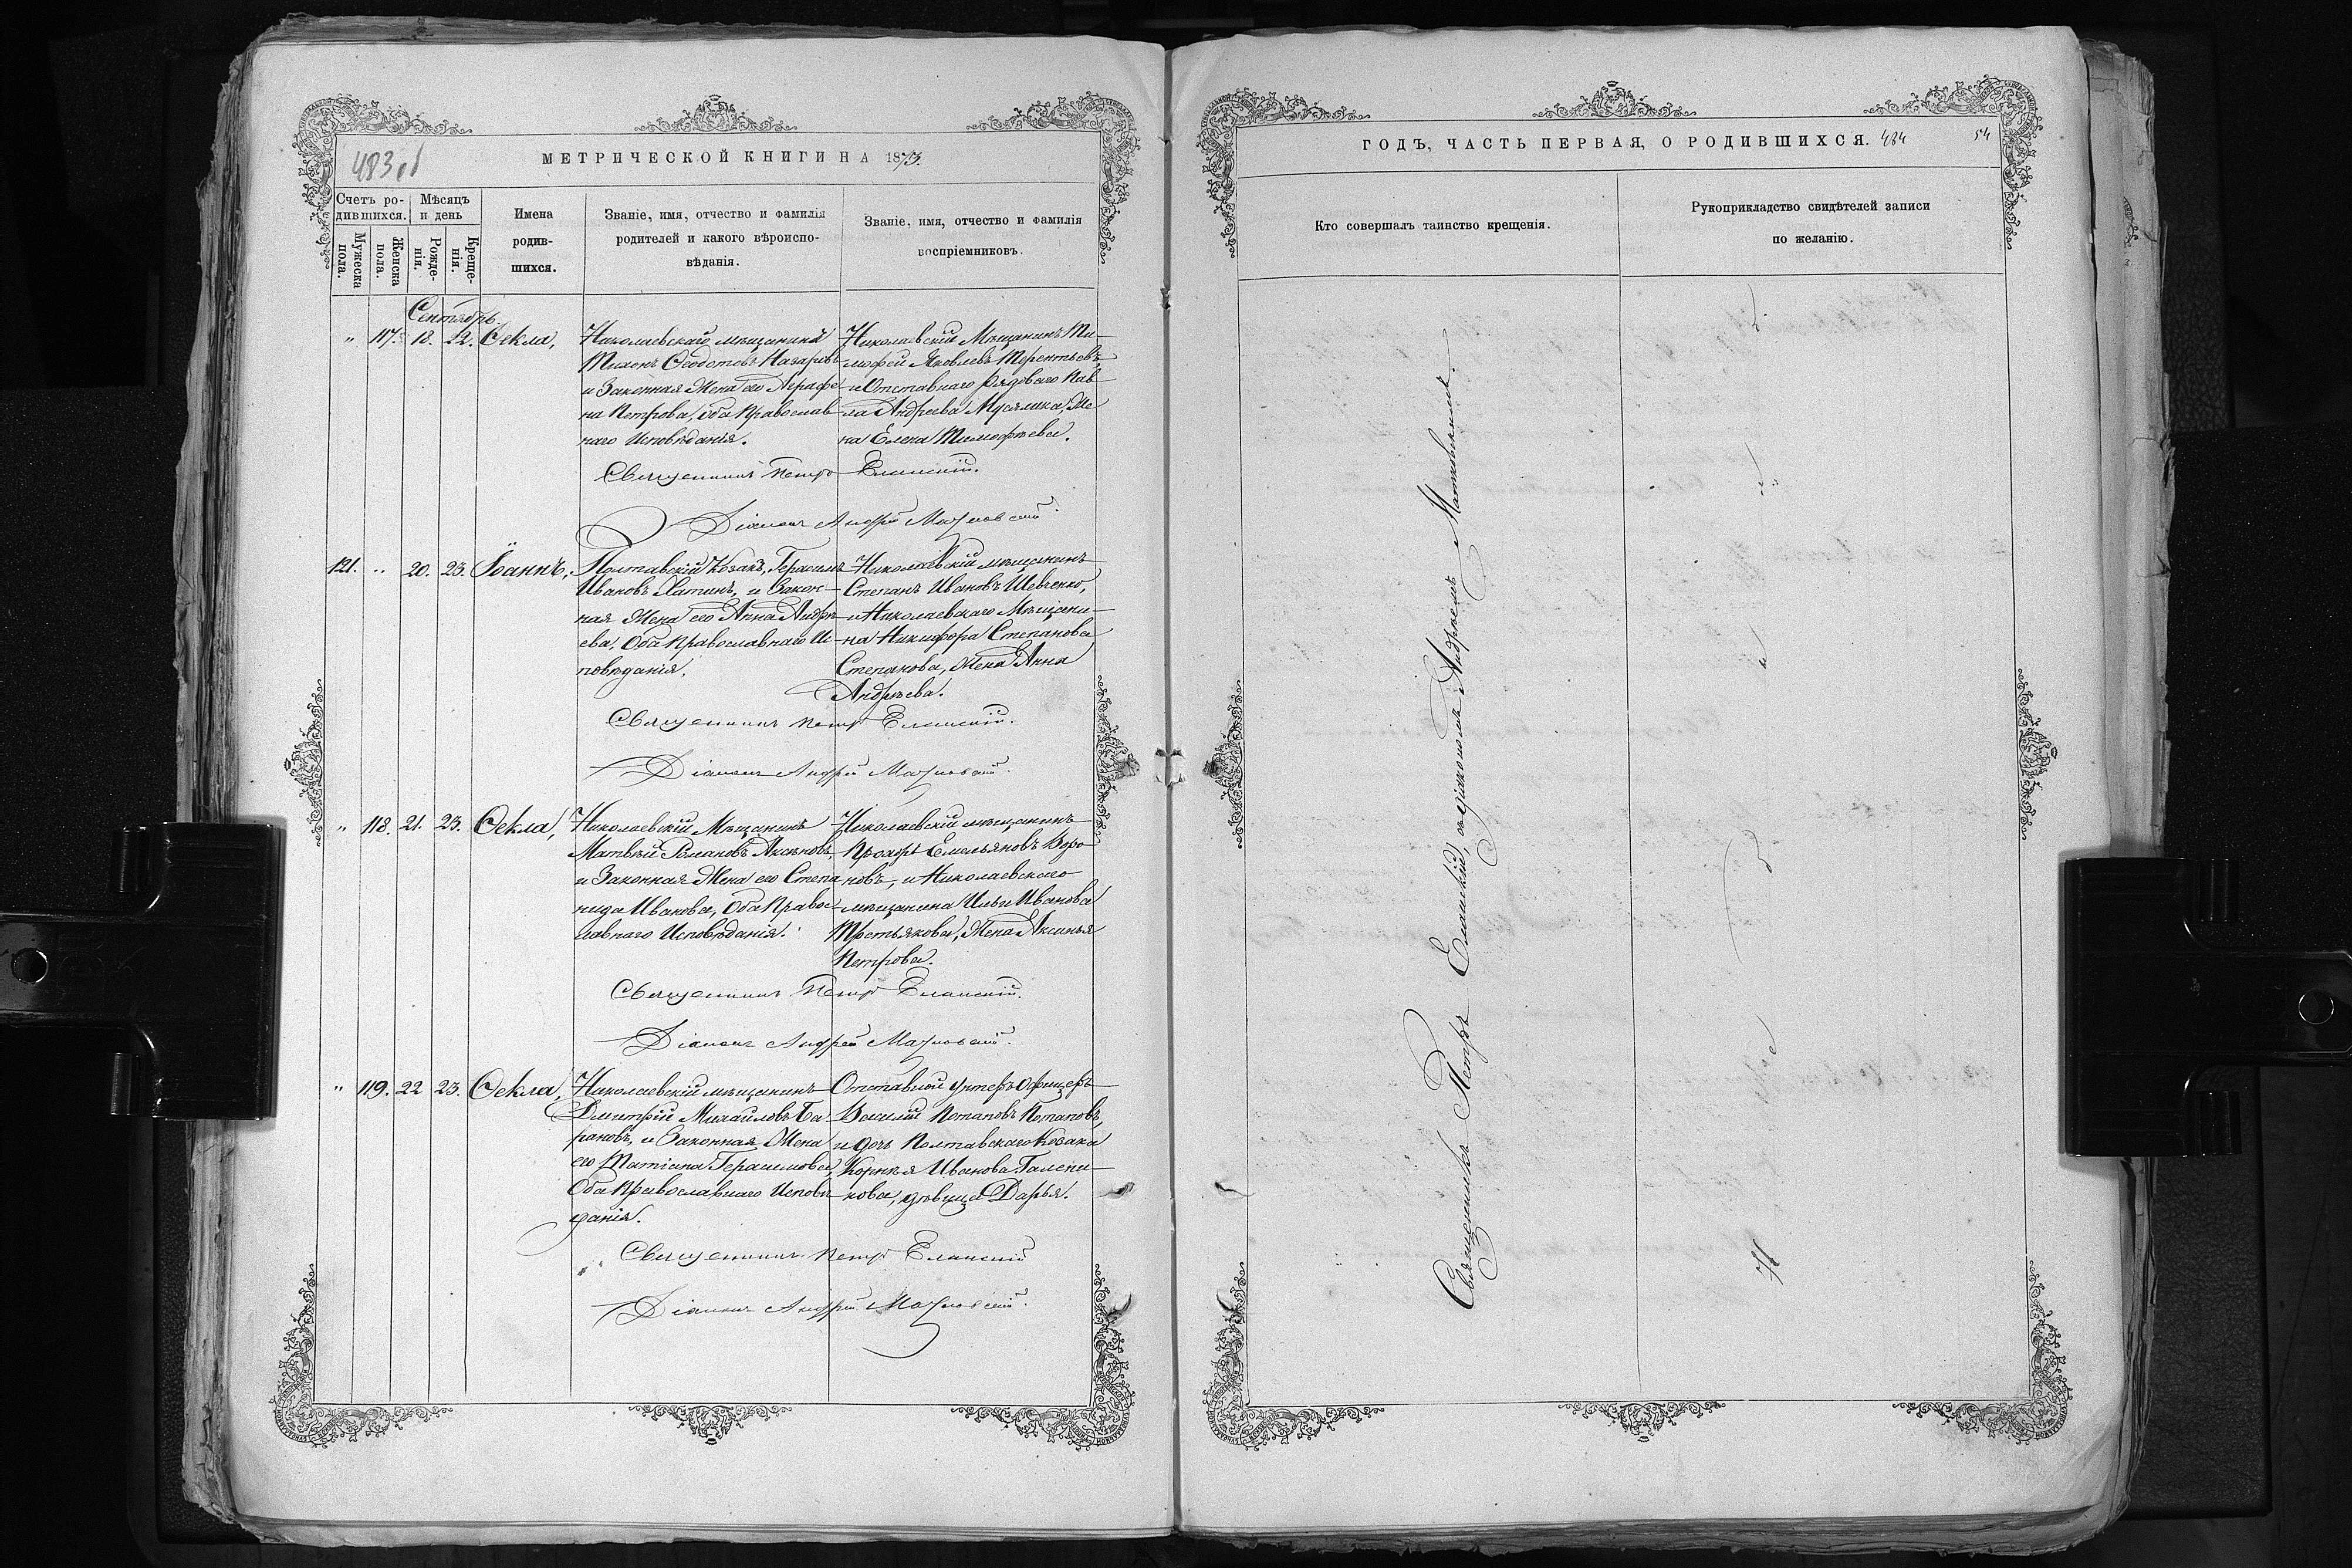 483 об
МЕТРИЧЕСКОЙ КНИГИ НА 1873.
Счетъ родившихся.
Мужеска пола.
Женска пола.
Мѣсяцъ и день
Рожденія.
Крещенія.
Имена родившихся.
Званіе, имя, отчество и фамилія
родителей и какого вѣроиспо-
вѣданія.
Званіе, имя, отчество и фамилія
воспріемниковъ.
Сентябрь.
" 117. 18. 22. Ѳекла,
Николаевскій мѣщанинъ
Тихонъ Ѳеодотовъ Назаровъ
и Законная Жена его Аграфе
на Петрова, оба Православ
наго Исповѣданія.
Николаевскій Мѣщанинъ Ти-
мофей Яковлевъ Терентьевъ,
и Отставнаго Рядоваго Пав
ла Андреева Жена
на Елена Тимофѣева.
Священникъ Петръ Еланскій.
Діаконъ Андрей
121. " 20. 23. Іоаннъ,
Полтавскій Козакъ, Герасимъ
Ивановъ Латинъ, и Закон-
ная Жена его Анна Андрѣ
ева, Оба Православнаго И-
повѣданія.
Николаевскій мѣщанинъ
Степанъ Ивановъ Шевченко,
и Николаевскаго Мѣщани-
на Никифора Степанова
Степанова, Жена Анна
Андрѣева.
Священникъ Петръ Еланскій.
Діаконъ Андрей
" 118. 21. 23. Ѳекла,
Николаевскій Мѣщанинъ
Матвѣй Романовъ Аксеновъ,
и Законная Жена его Степа
нида Иванова, Оба Правос
лавнаго Исповѣданія.
Николаевскій мѣщанинъ
Емельяновъ Воро
новъ, и Николаевскаго
мѣщанина Ильи Иванова
Третьякова, Жена Аксинья
Петрова.
Священникъ Петръ Еланскій.
Діаконъ Андрей
" 119. 22 23. Ѳекла,
Николаевскій мѣщанинъ
Дмитрій Михайловъ Ба
рановъ, и Законная Жена
его Татіана Герасимова,
Оба Православнаго Исповѣ
данія.
Отставной Унтеръ Офицеръ
Василій Потаповъ Потаповъ,
и дочь Полтавскаго Козака
Корнѣя Иванова
кова, дѣвица Дарья.
Священникъ Петръ Еланскій
Діаконъ Андрей
ГОДЪ, ЧАСТЬ ПЕРВАЯ, О РОДИВШИХСЯ.
484
54
Кто совершалъ таинство крещенія.
Рукоприкладство свидѣтелей записи
по желанію.
Священникъ Петръ Еланскій, съ діакономъ Андреемъ